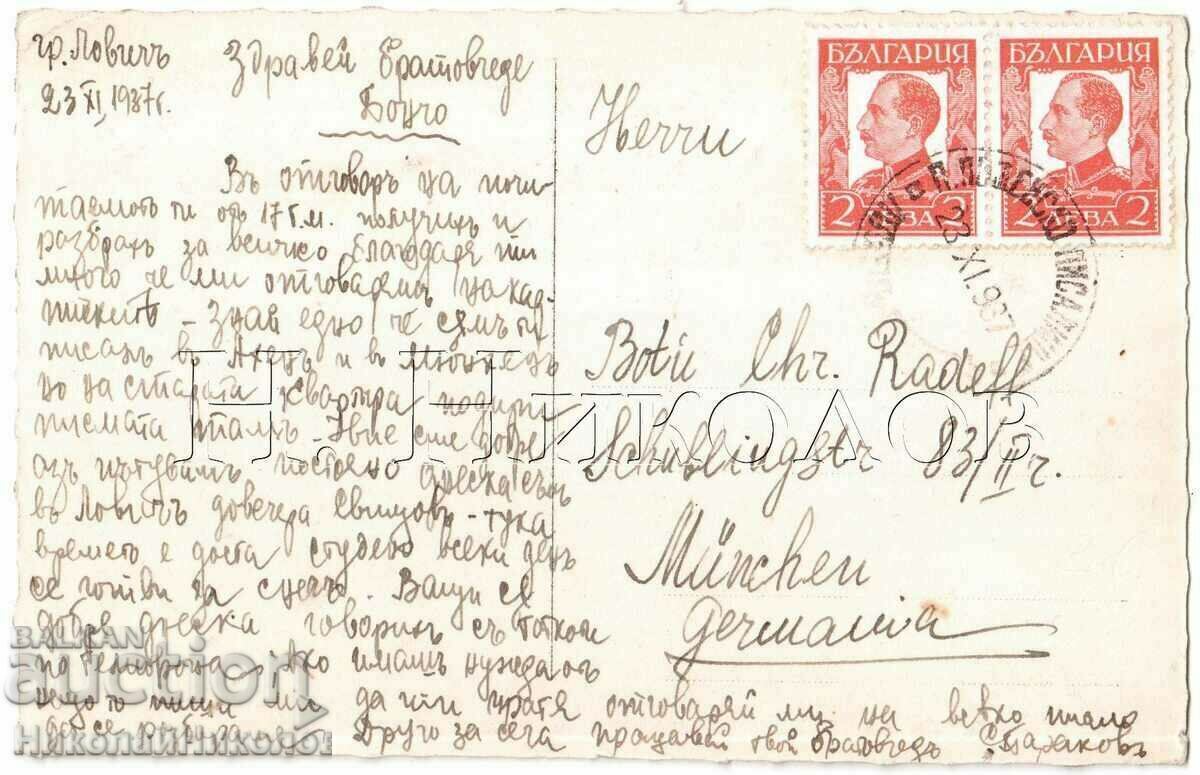 гр. Ловечъ
23 XI 1937 г.
Здравей братовчеде
Боучо
Въ отговоръ на почи-
таемото ти отъ 17 т.м. получихъ и
разбрахъ за всичко благодаря ти
много че ми отговаряшъ на кар-
тичкитѣ – Знай едно че съмъ ти
писалъ въ и въ Мюнхенъ
но на старата квартира
писмата тамъ – Ние сме добре
азъ пътувамъ постояно днеска съмъ
въ Ловечъ довечера Свищовъ – тука
времето е доста студено всеки день
се готви за снегъ. Ваши са
добре днеска говорихъ съ
по телефона, Ако имашъ нужда отъ
нещо пиши ми да ти пратя отговаряй ми на всяко писмо
да се Друго за сега прощавай твой братовчедъ
БЪЛГАРИЯ
2 ЛЕВА 2
БЪЛГАРИЯ
2 ЛЕВА 2
23 XI.937
Herrn
Botü Chr. Radeff
Schillingstr 83/II r.
München
Germania
Н. НИКОЛОВ
BALKAN
auction
НиколайНиколов